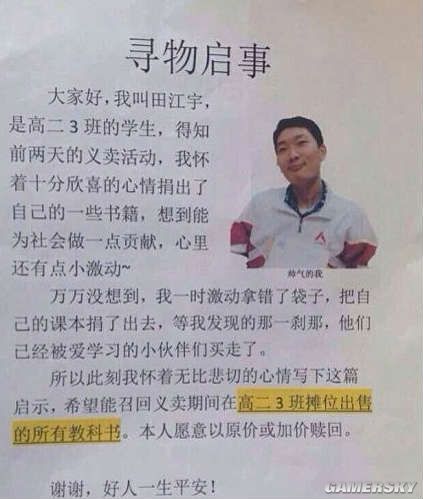 寻物启事
大家好，我叫田江宇，
是高二3班的学生，得知
前两天的义卖活动，我怀
着十分欣喜的心情捐出了
自己的一些书籍，想到能
为社会做一点贡献，心里
还有点小激动~
帅气的我
万万没想到，我一时激动拿错了袋子，把自
己的课本捐了出去，等我发现的那一刹那，他们
已经被爱学习的小伙伴们买走了。
所以此刻我怀着无比悲切的心情写下这篇
启示，希望能召回义卖期间在高二3班摊位出售
的所有教科书。本人愿意以原价或加价赎回。
谢谢，好人一生平安！
GAMERSKY